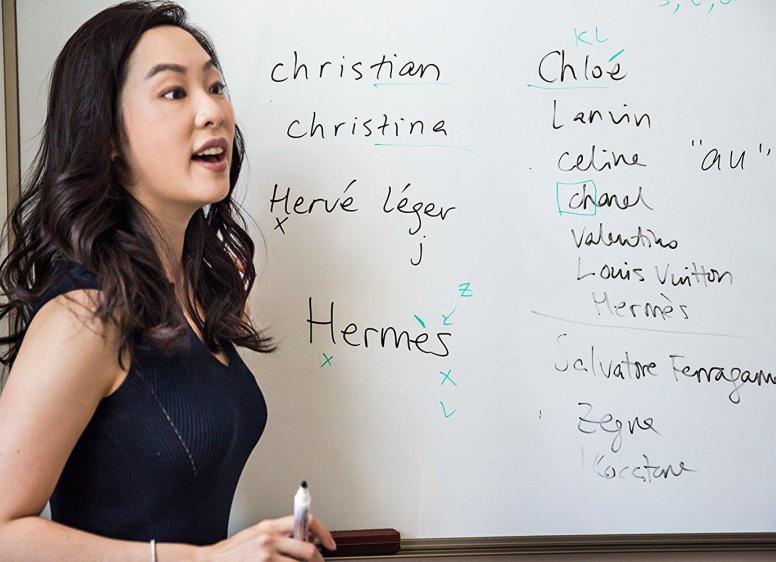 christian
christina
Hervé léger
x
j
z
Hermès
x
x
KL
Chloé
Lanvin
celine
"au"
chanel
Valentino
Louis Vuitton
Hermès
Salvatore Ferragam
Zegna